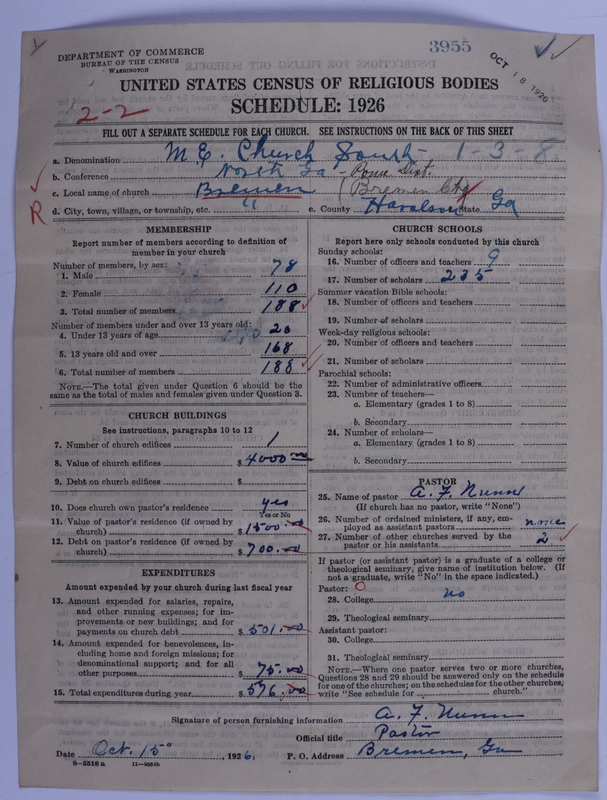 3955
DEPARTMENT OF COMMERCE
BUREAU OF THE CENSUS
WASHINGTON
OCT 18 1926
UNITED STATES CENSUS OF RELIGIOUS BODIES
2-2
SCHEDULE: 1926
FILL OUT A SEPARATE SCHEDULE FOR EACH CHURCH. SEE INSTRUCTIONS ON THE BACK OF THIS SHEET
a. Denomination M. E. Church South 1-3-8
b. Conference North Ga - Rome Dist.
c. Local name of church Bremen (Bremen Chg
R d. City, town, village, or township, etc. " e. County Haralson State Ga
MEMBERSHIP
Report number of members according to definition of
member in your church
Number of members, by sex:
1. Male 78
2. Female 110
3. Total number of members 188
Number of members under and over 13 years old:
4. Under 13 years of age 20
5. 13 years old and over 168
6. Total number of members 188
NOTE.—The total given under Question 6 should be the
same as the total of males and females given under Question 3.
CHURCH BUILDINGS
See instructions, paragraphs 10 to 12
7. Number of church edifices 1
8. Value of church edifices $4000
9. Debt on church edifices $
10. Does church own pastor's residence yes
Yes or No
11. Value of pastor's residence (if owned by
church) $1500.00
12. Debt on pastor's residence (if owned by
church) $700.00
EXPENDITURES
Amount expended by your church during last fiscal year
13. Amount expended for salaries, repairs,
and other running expenses; for im-
provements or new buildings; and for
payments on church debt $501.00
14. Amount expended for benevolences, in-
cluding home and foreign missions; for
denominational support; and for all
other purposes $75.00
15. Total expenditures during year $576.00
CHURCH SCHOOLS
Report here only schools conducted by this church
Sunday schools:
16. Number of officers and teachers 9
17. Number of scholars 235
Summer vacation Bible schools:
18. Number of officers and teachers
19. Number of scholars
Week-day religious schools:
20. Number of officers and teachers
21. Number of scholars
Parochial schools:
22. Number of administrative officers
23. Number of teachers—
a. Elementary (grades 1 to 8)
b. Secondary
24. Number of scholars—
a. Elementary (grades 1 to 8)
b. Secondary
PASTOR
25. Name of pastor A. F. Nunn
(If church has no pastor, write "None")
26. Number of ordained ministers, if any, em-
ployed as assistant pastors none
27. Number of other churches served by the
pastor or his assistants 2
If pastor (or assistant pastor) is a graduate of a college or
theological seminary, give name of institution below. (If
not a graduate, write "No" in the space indicated.)
Pastor: O
28. College no
29. Theological seminary
Assistant pastor:
30. College
31. Theological seminary
NOTE.—Where one pastor serves two or more churches,
Questions 28 and 29 should be answered only on the schedule
for one of the churches; on the schedules for the other churches,
write "See schedule for church."
Signature of person furnishing information A. F. Nunn
Official title Pastor
Date Oct. 15", 1926. P. O. Address Bremen, Ga
8-5518 a